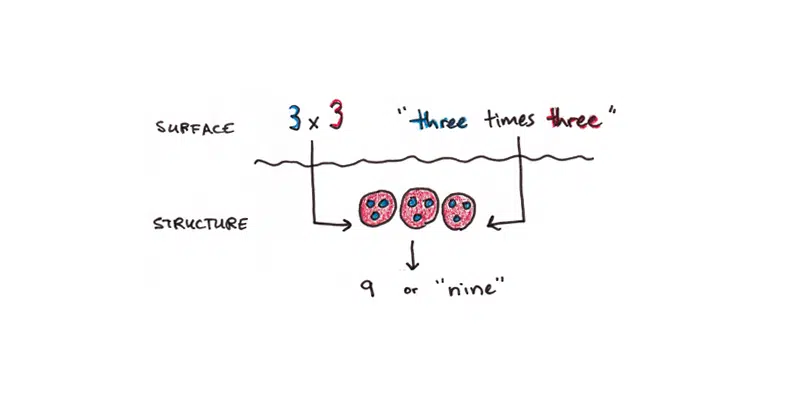 SURFACE 3 x 3 "three times three"
STRUCTURE
9 or "nine"